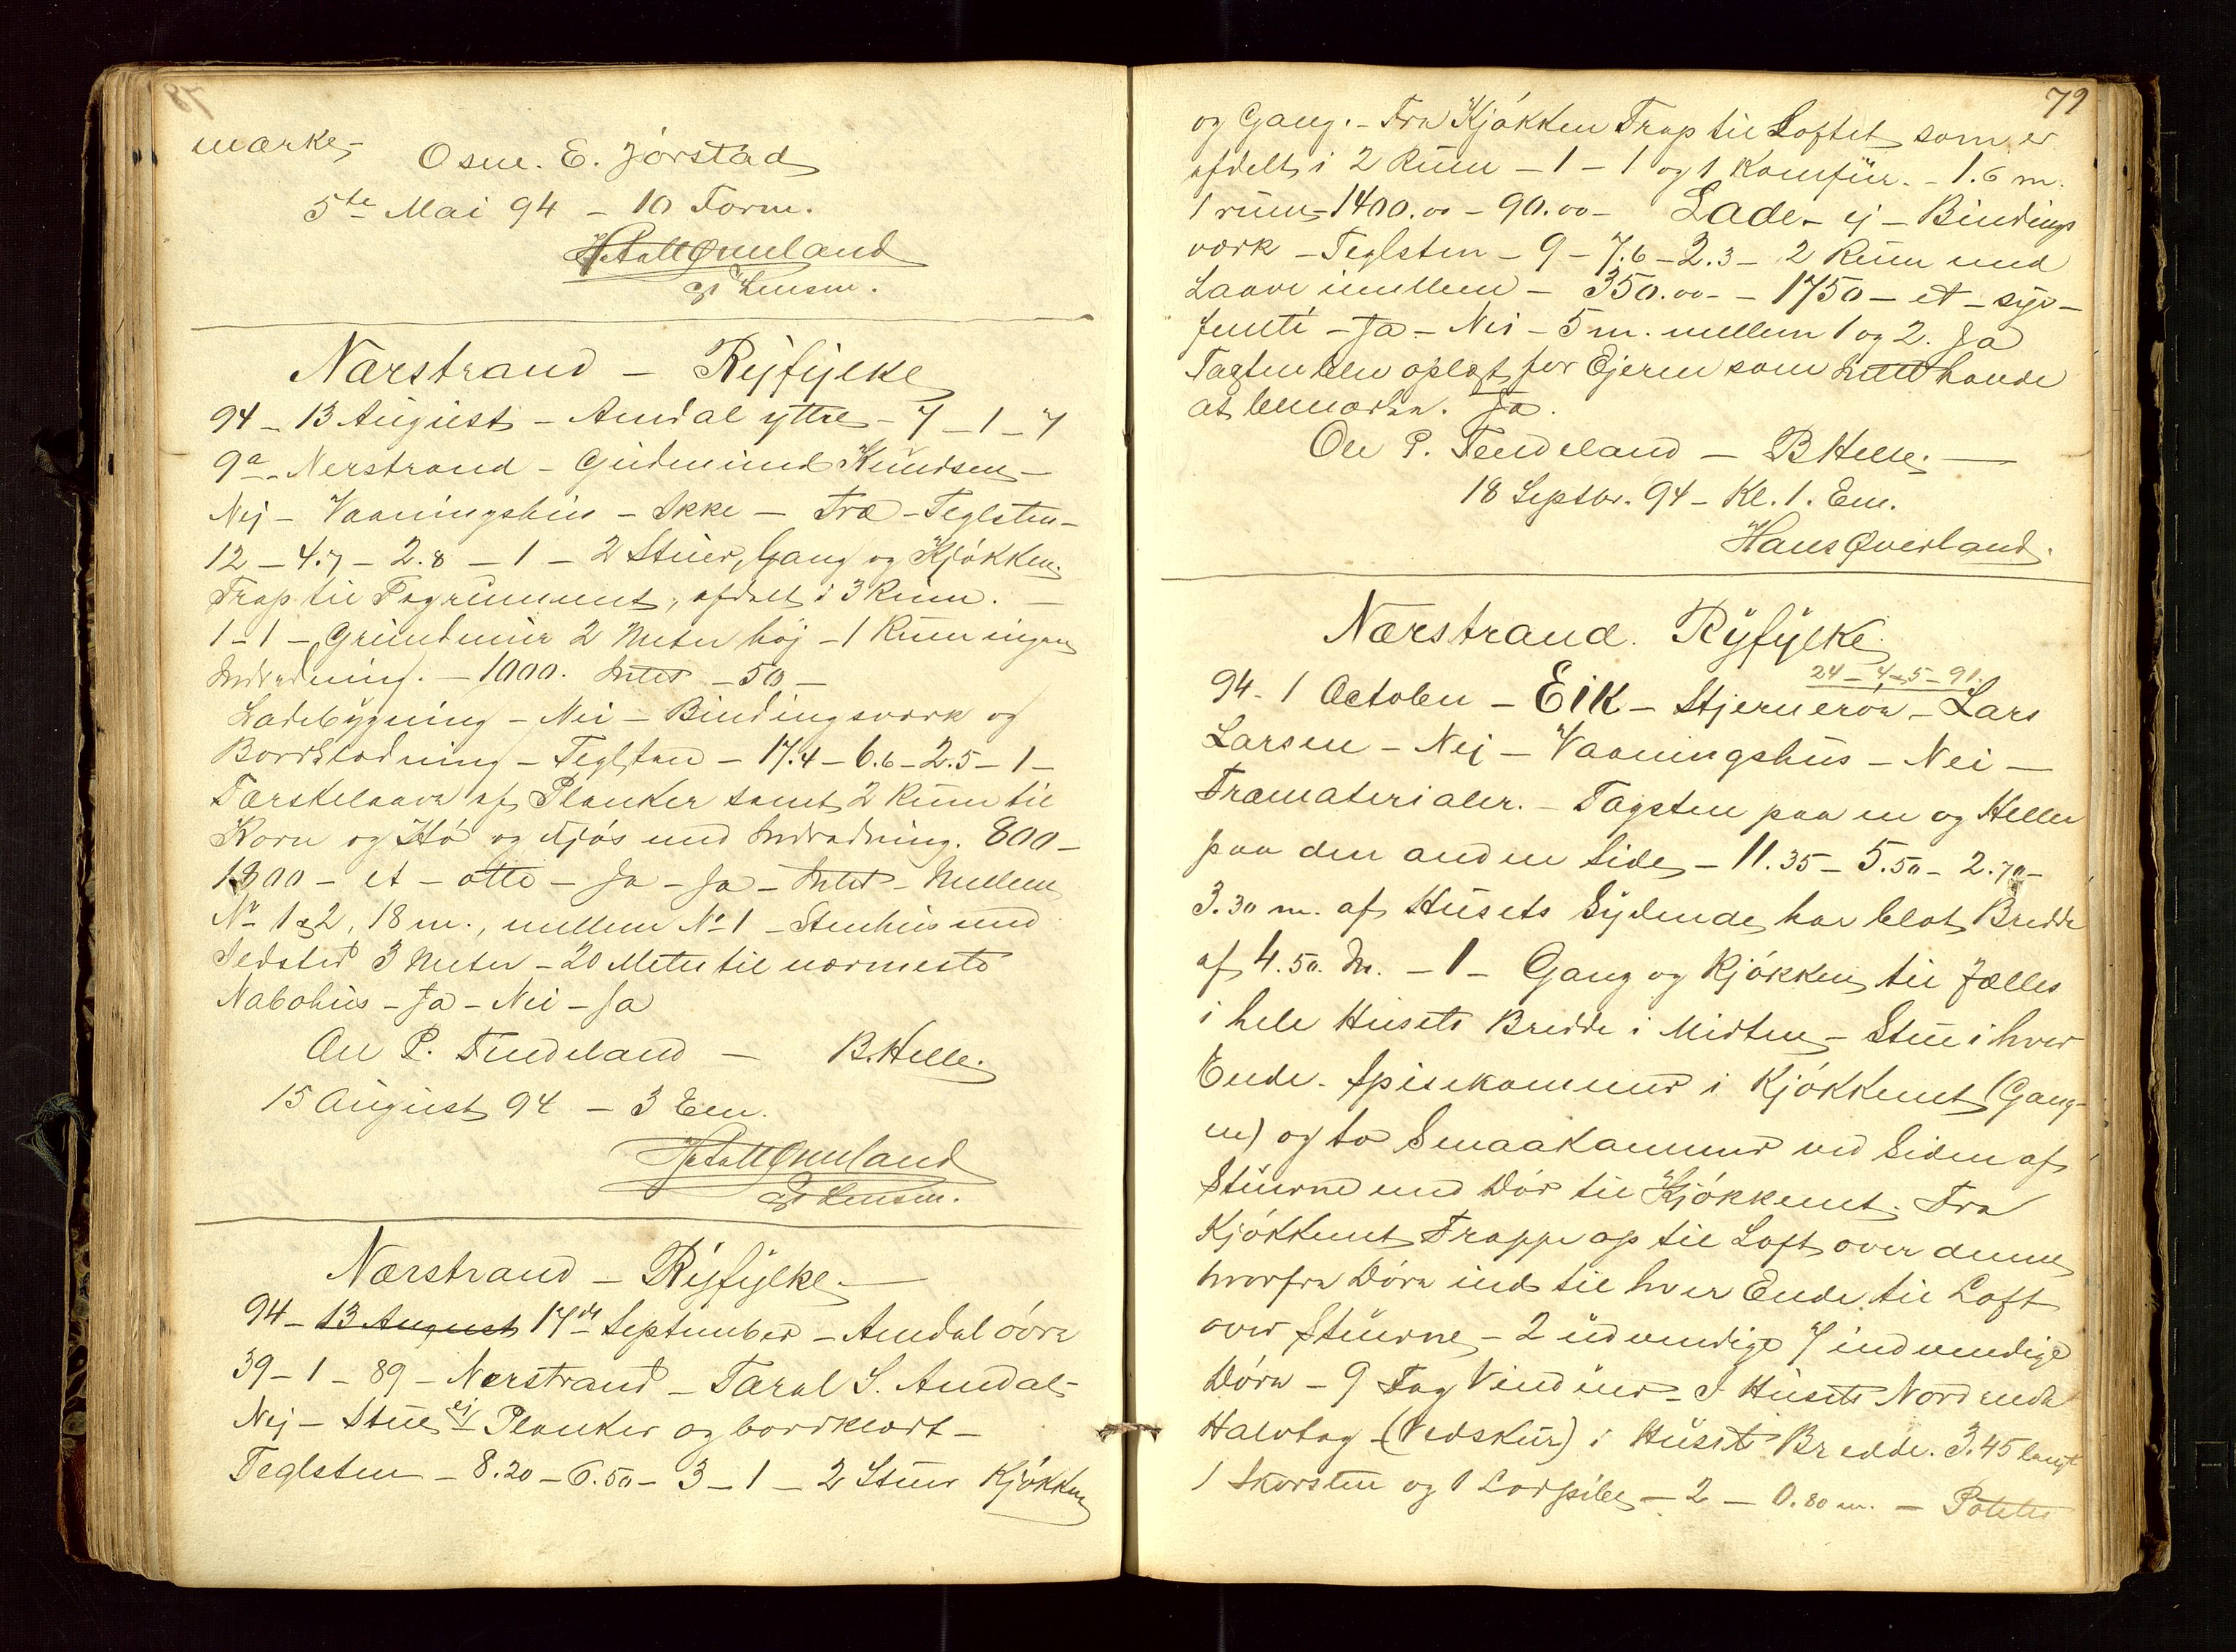 mærke,
Osm. E. Jørstad
5te Mai 94 – 10 Form.
Lensm.
Nærstrand – Ryfylke
94 – 13 August – Amdal yttre – 7 – 1 – 7
9a – Nerstrand – Gudmund Knudsen –
Nej – Vaaningshus – Ikke – Træ – Teglsten –
12 – 4.7 – 2.8 – 1 – 2 Stuer, Gang og Kjøkken.
Trap til Tagrummet, afdelt i 3 Rum. –
1 – 1 – Grundmur 2 Meter høj – 1 Rum ingen
Indredning. – 1000. Intet – 50 –
Ladebygning – Nei – Bindingsværk og
Bordklædning – Teglsten – 17.4 – 6.6 – 2.5 – 1 –
Tærskelaave af Planker samt 2 Rum til
Korn og Hø og Fjøs med Indredning. 800 –
1800 – et – otte – Ja – Ja – Intet – Mellem
No 1 & 2, 18 m., mellem No 1 – Stenhus med
Ildsted 3 Meter – 20 Meter til nærmeste
Nabohus – Ja – Nei – Ja
Ole P. Tendeland – B. Helle.
15 August 94 – 3 Em.
Lensm.
Nærstrand – Ryfylke. –
94 – 13 August 17de September – Amdal øvre
39 – 1 – 89 – Nerstrand – Taral S. Amdal –
Nej – Stue ej Planker og bordklædt –
Teglsten – 8.20 – 6.50 – 3 – 1 – 2 Stuer Kjøkken
79
og Gang. – Fra Kjøkken Trap til Loftet som er
afdelt i 2 Rum – 1 – 1 og 1 Komfur. – 1.6 m.
1 rum – 1400.00 – 90.00 – Lade – ej – Bindings
værk – Teglsten – 9 – 7.6 – 2.3 – 2 Rum med
Laave imellem – 350.00 – – 1750 – et – syv –
femti – Ja – Nei – 5 m. mellem 1 og 2. Ja
Taxten blev oplæst for Ejeren som intet havde
at bemærke. Ja.
Ole P. Tendeland – B Helle. –
18 Septbr. 94 – Kl. 1. Em.
Hans Øverland.
Nærstrand. Ryfylke.
24 – 4 – 5 – 91.
94 – 1 October – Eik – Stjernerøe – Lars
Larsen – Nej – Vaaningshus – Nei –
Træmaterialer. – Tagsten paa en og Heller
paa den anden Side – 11.35 – 5.50 – 2.70 –
3.30 m. af Husets Sydende har blot Bredde
af 4.50. M. – 1 – Gang og Kjøkken til fælles
i hele Husets Bredde i Midten – Stue i hver
Ende. Spisekammer i Kjøkkenet (Gang-
en) og to Smaakammer ved Siden af
Stuerne med Dør til Kjøkkenet. Fra
Kjøkkenet Trappe op til Loft over denne
hvorfra Døre ind til hver Ende til Loft
over Stuerne – 2 udvendige 7 indvendige
Døre – 9 Fag Vinduer – I Husets Nordende
Halvtag (Vedskur) i Husets Bredde. 3.45 langt
1 Skorsten og 1 – 2 – 0.80 m. – Potetes